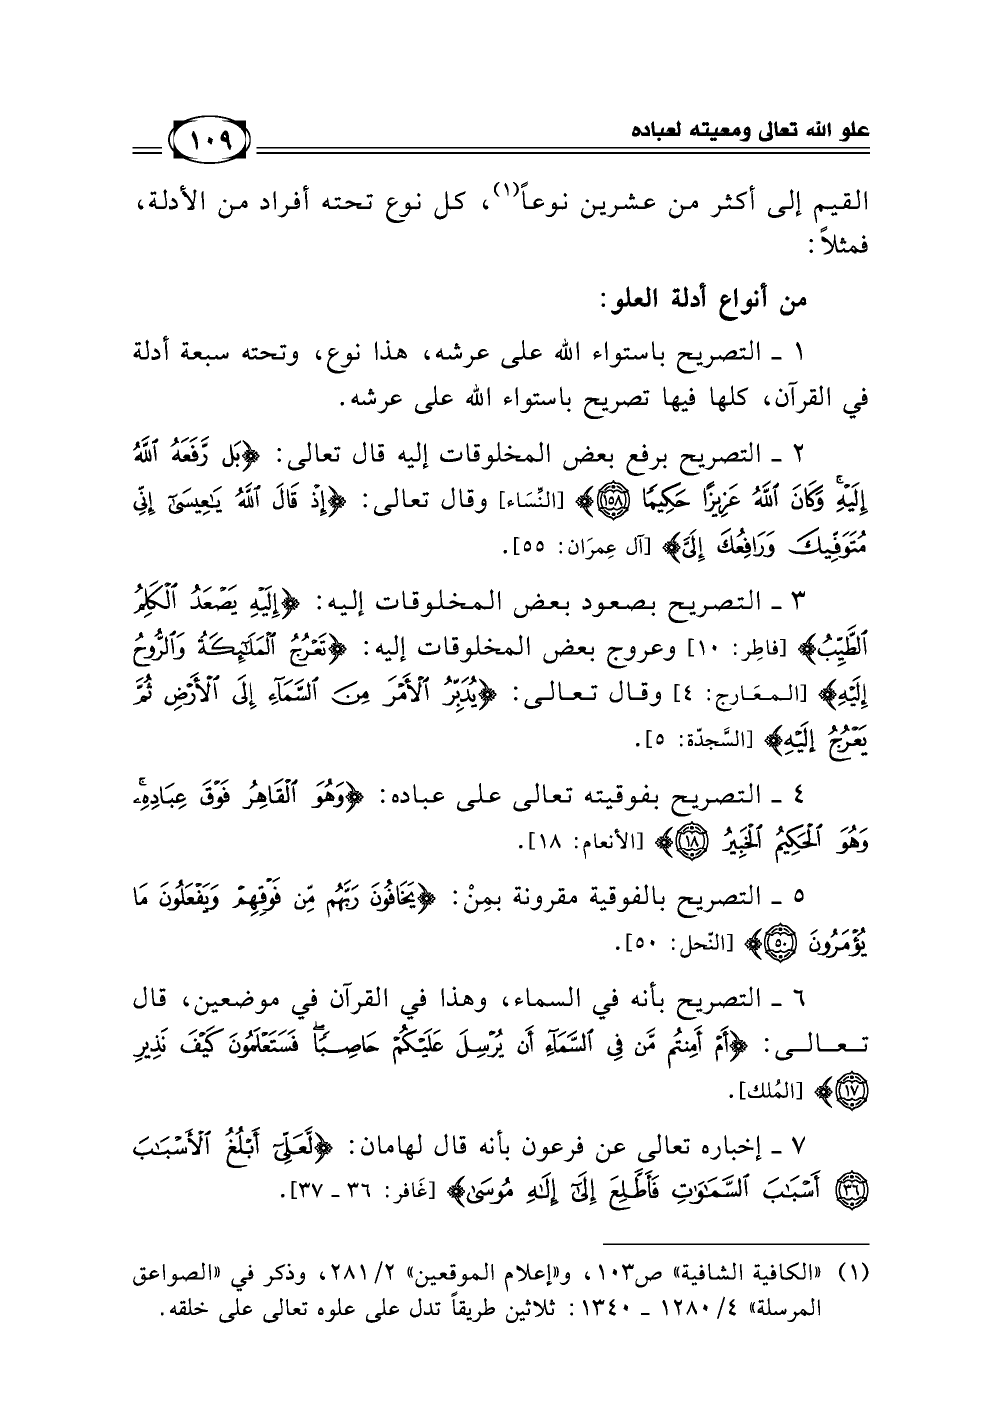 علو الله تعالى ومعيته لعباده
١٠٩
القيم إلى أكثر من عشرين نوعاً(١)، كل نوع تحته أفراد من الأدلة،
فمثلاً:
من أنواع أدلة العلو:
١ ـ التصريح باستواء الله على عرشه، هذا نوع، وتحته سبعة أدلة
في القرآن، كلها فيها تصريح باستواء الله على عرشه.
٢ ـ التصريح برفع بعض المخلوقات إليه قال تعالى: ﴿بَل رَّفَعَهُ ٱللَّهُ
إِلَيۡهِۚ وَكَانَ ٱللَّهُ عَزِيزًا حَكِيمٗا ١٥٨﴾ [النِّسَاء] وقال تعالى: ﴿إِذۡ قَالَ ٱللَّهُ يَٰعِيسَىٰٓ إِنِّي
مُتَوَفِّيكَ وَرَافِعُكَ إِلَيَّ﴾ [آل عِمرَان: ٥٥].
٣ ـ التصريح بصعود بعض المخلوقات إليه: ﴿إِلَيۡهِ يَصۡعَدُ ٱلۡكَلِمُ
ٱلطَّيِّبُ﴾ [فاطِر: ١٠] وعروج بعض المخلوقات إليه: ﴿تَعۡرُجُ ٱلۡمَلَٰٓئِكَةُ وَٱلرُّوحُ
إِلَيۡهِ﴾ [المعَارج: ٤] وقال تعالى: ﴿يُدَبِّرُ ٱلۡأَمۡرَ مِنَ ٱلسَّمَآءِ إِلَى ٱلۡأَرۡضِ ثُمَّ
يَعۡرُجُ إِلَيۡهِ﴾ [السَّجدَة: ٥].
٤ ـ التصريح بفوقيته تعالى على عباده: ﴿وَهُوَ ٱلۡقَاهِرُ فَوۡقَ عِبَادِهِۦۚ
وَهُوَ ٱلۡحَكِيمُ ٱلۡخَبِيرُ ١٨﴾ [الأنعام: ١٨].
٥ ـ التصريح بالفوقية مقرونة بمِنْ: ﴿يَخَافُونَ رَبَّهُم مِّن فَوۡقِهِمۡ وَيَفۡعَلُونَ مَا
يُؤۡمَرُونَ ٥٠﴾ [النّحل: ٥٠].
٦ ـ التصريح بأنه في السماء، وهذا في القرآن في موضعين، قال
تعالى: ﴿أَمۡ أَمِنتُم مَّن فِي ٱلسَّمَآءِ أَن يُرۡسِلَ عَلَيۡكُمۡ حَاصِبٗاۖ فَسَتَعۡلَمُونَ كَيۡفَ نَذِيرِ
١٧﴾ [المُلك].
٧ ـ إخباره تعالى عن فرعون بأنه قال لهامان: ﴿لَّعَلِّيٓ أَبۡلُغُ ٱلۡأَسۡبَٰبَ
٣٦ أَسۡبَٰبَ ٱلسَّمَٰوَٰتِ فَأَطَّلِعَ إِلَىٰٓ إِلَٰهِ مُوسَىٰ﴾ [غَافر: ٣٦ ـ ٣٧].
(١) «الكافية الشافية» ص١٠٣، و«إعلام الموقعين» ٢٨١/٢، وذكر في «الصواعق
المرسلة» ١٢٨٠/٤ ـ ١٣٤٠: ثلاثين طريقاً تدل على علوه تعالى على خلقه.